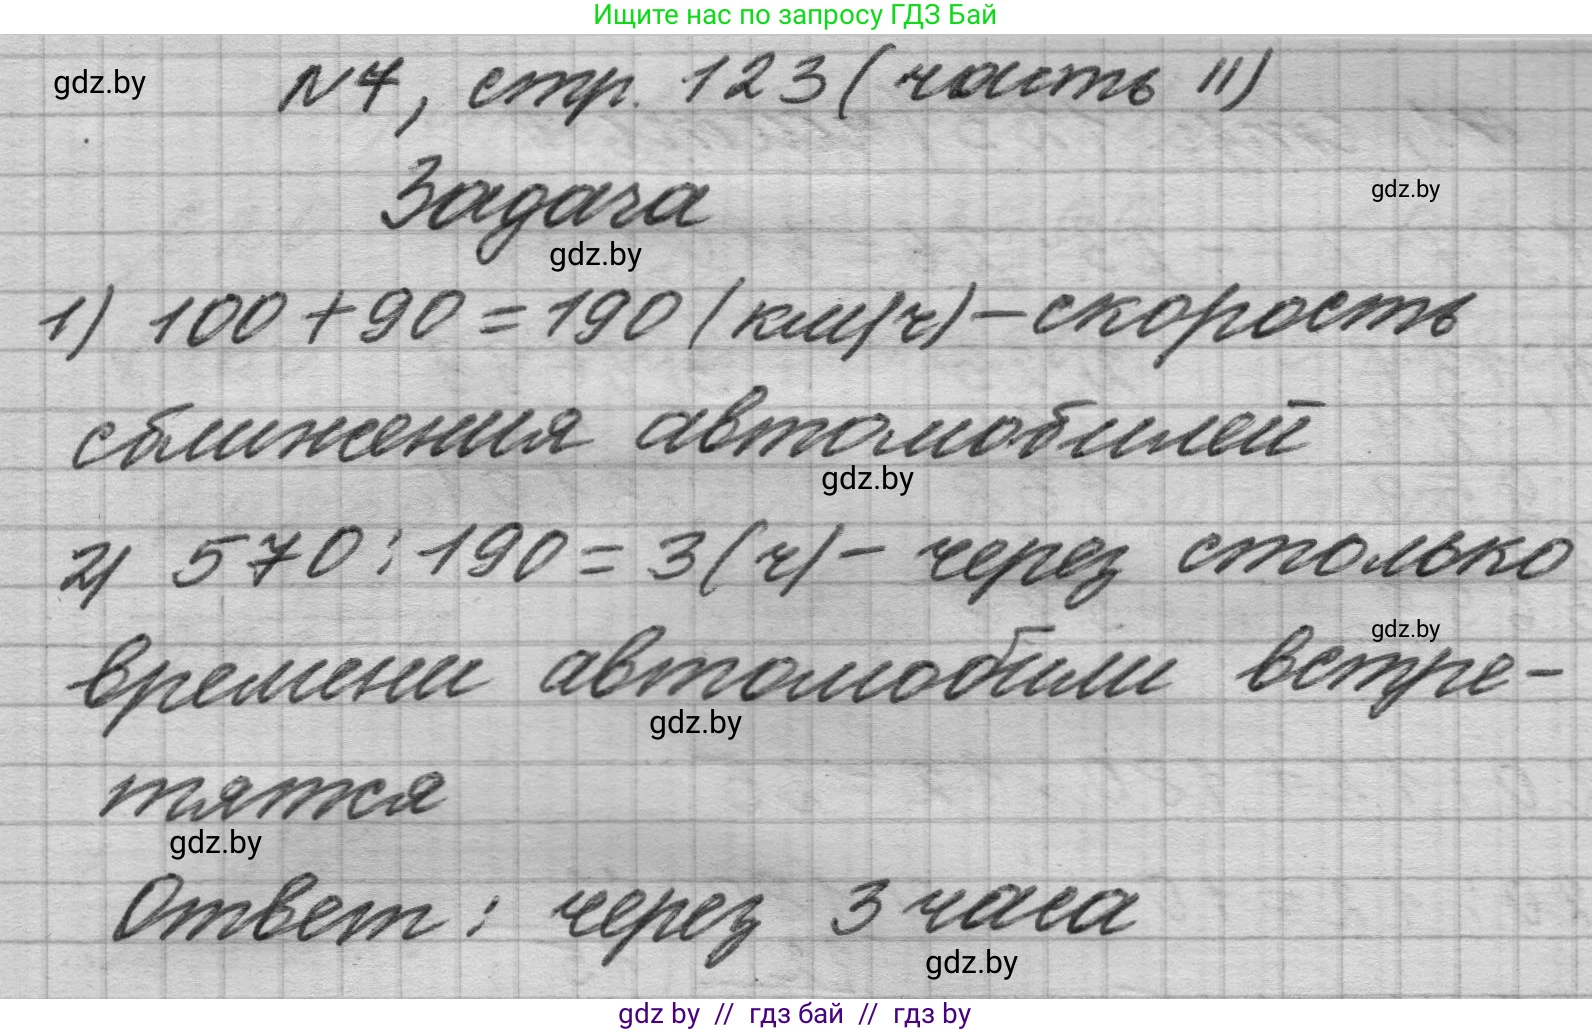 Ищите нас по запросу ГДЗ Бай
gdz.by
№7, стр. 123 (часть II)
Задача
gdz.by
gdz.by
1) 100+90=190 (км/ч)-скорость
сближения автомобилей
gdz.by
2) 570:190=3(ч)- через столько
gdz.by
времени автомобили встре-
gdz.by
тятся
gdz.by
Ответ: через 3 часа
gdz.by
gdz by // гдз бай // гдз by